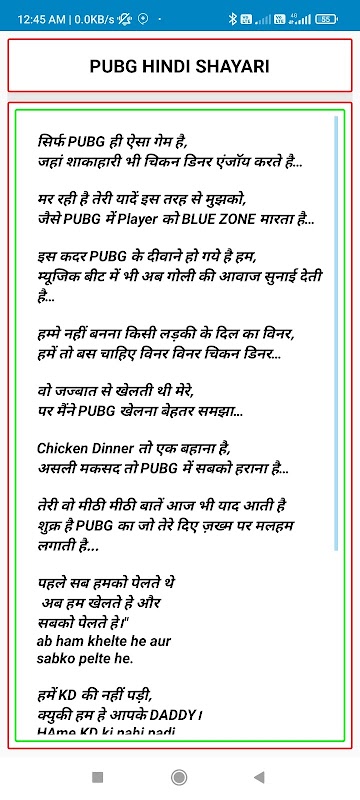 12:45 AM | 0.0KB/s
4G
55
PUBG HINDI SHAYARI
सिर्फ PUBG ही ऐसा गेम है,
जहां शाकाहारी भी चिकन डिनर एंजॉय करते है...
मर रही है तेरी यादें इस तरह से मुझको,
जैसे PUBG में Player को BLUE ZONE मारता है...
इस कदर PUBG के दीवाने हो गये है हम,
म्यूजिक बीट में भी अब गोली की आवाज सुनाई देती
है...
हम्मे नहीं बनना किसी लड़की के दिल का विनर,
हमें तो बस चाहिए विनर विनर चिकन डिनर...
वो जज्बात से खेलती थी मेरे,
पर मैंने PUBG खेलना बेहतर समझा...
Chicken Dinner तो एक बहाना है,
असली मकसद तो PUBG में सबको हराना है...
तेरी वो मीठी मीठी बातें आज भी याद आती है
शुक्र है PUBG का जो तेरे दिए ज़ख्म पर मलहम
लगाती है...
पहले सब हमको पेलते थे
अब हम खेलते हे और
सबको पेलते हे।"
ab ham khelte he aur
sabko pelte he.
हमें KD की नहीं पड़ी,
क्युकी हम हे आपके DADDY।
HAme KD ki nahi padi